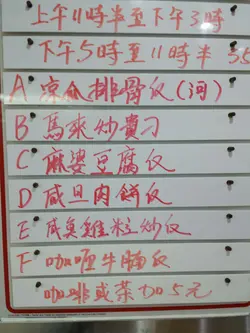 上午11時半至下午3時
下午5時至11時半 35
A 凉瓜排骨仅(河)
B 馬來炒貴刁
C 麻婆豆腐仅
D 咸旦肉餅仅
E 咸魚雞粒炒仅
F 咖喱牛腩仅
咖啡或茶加5元